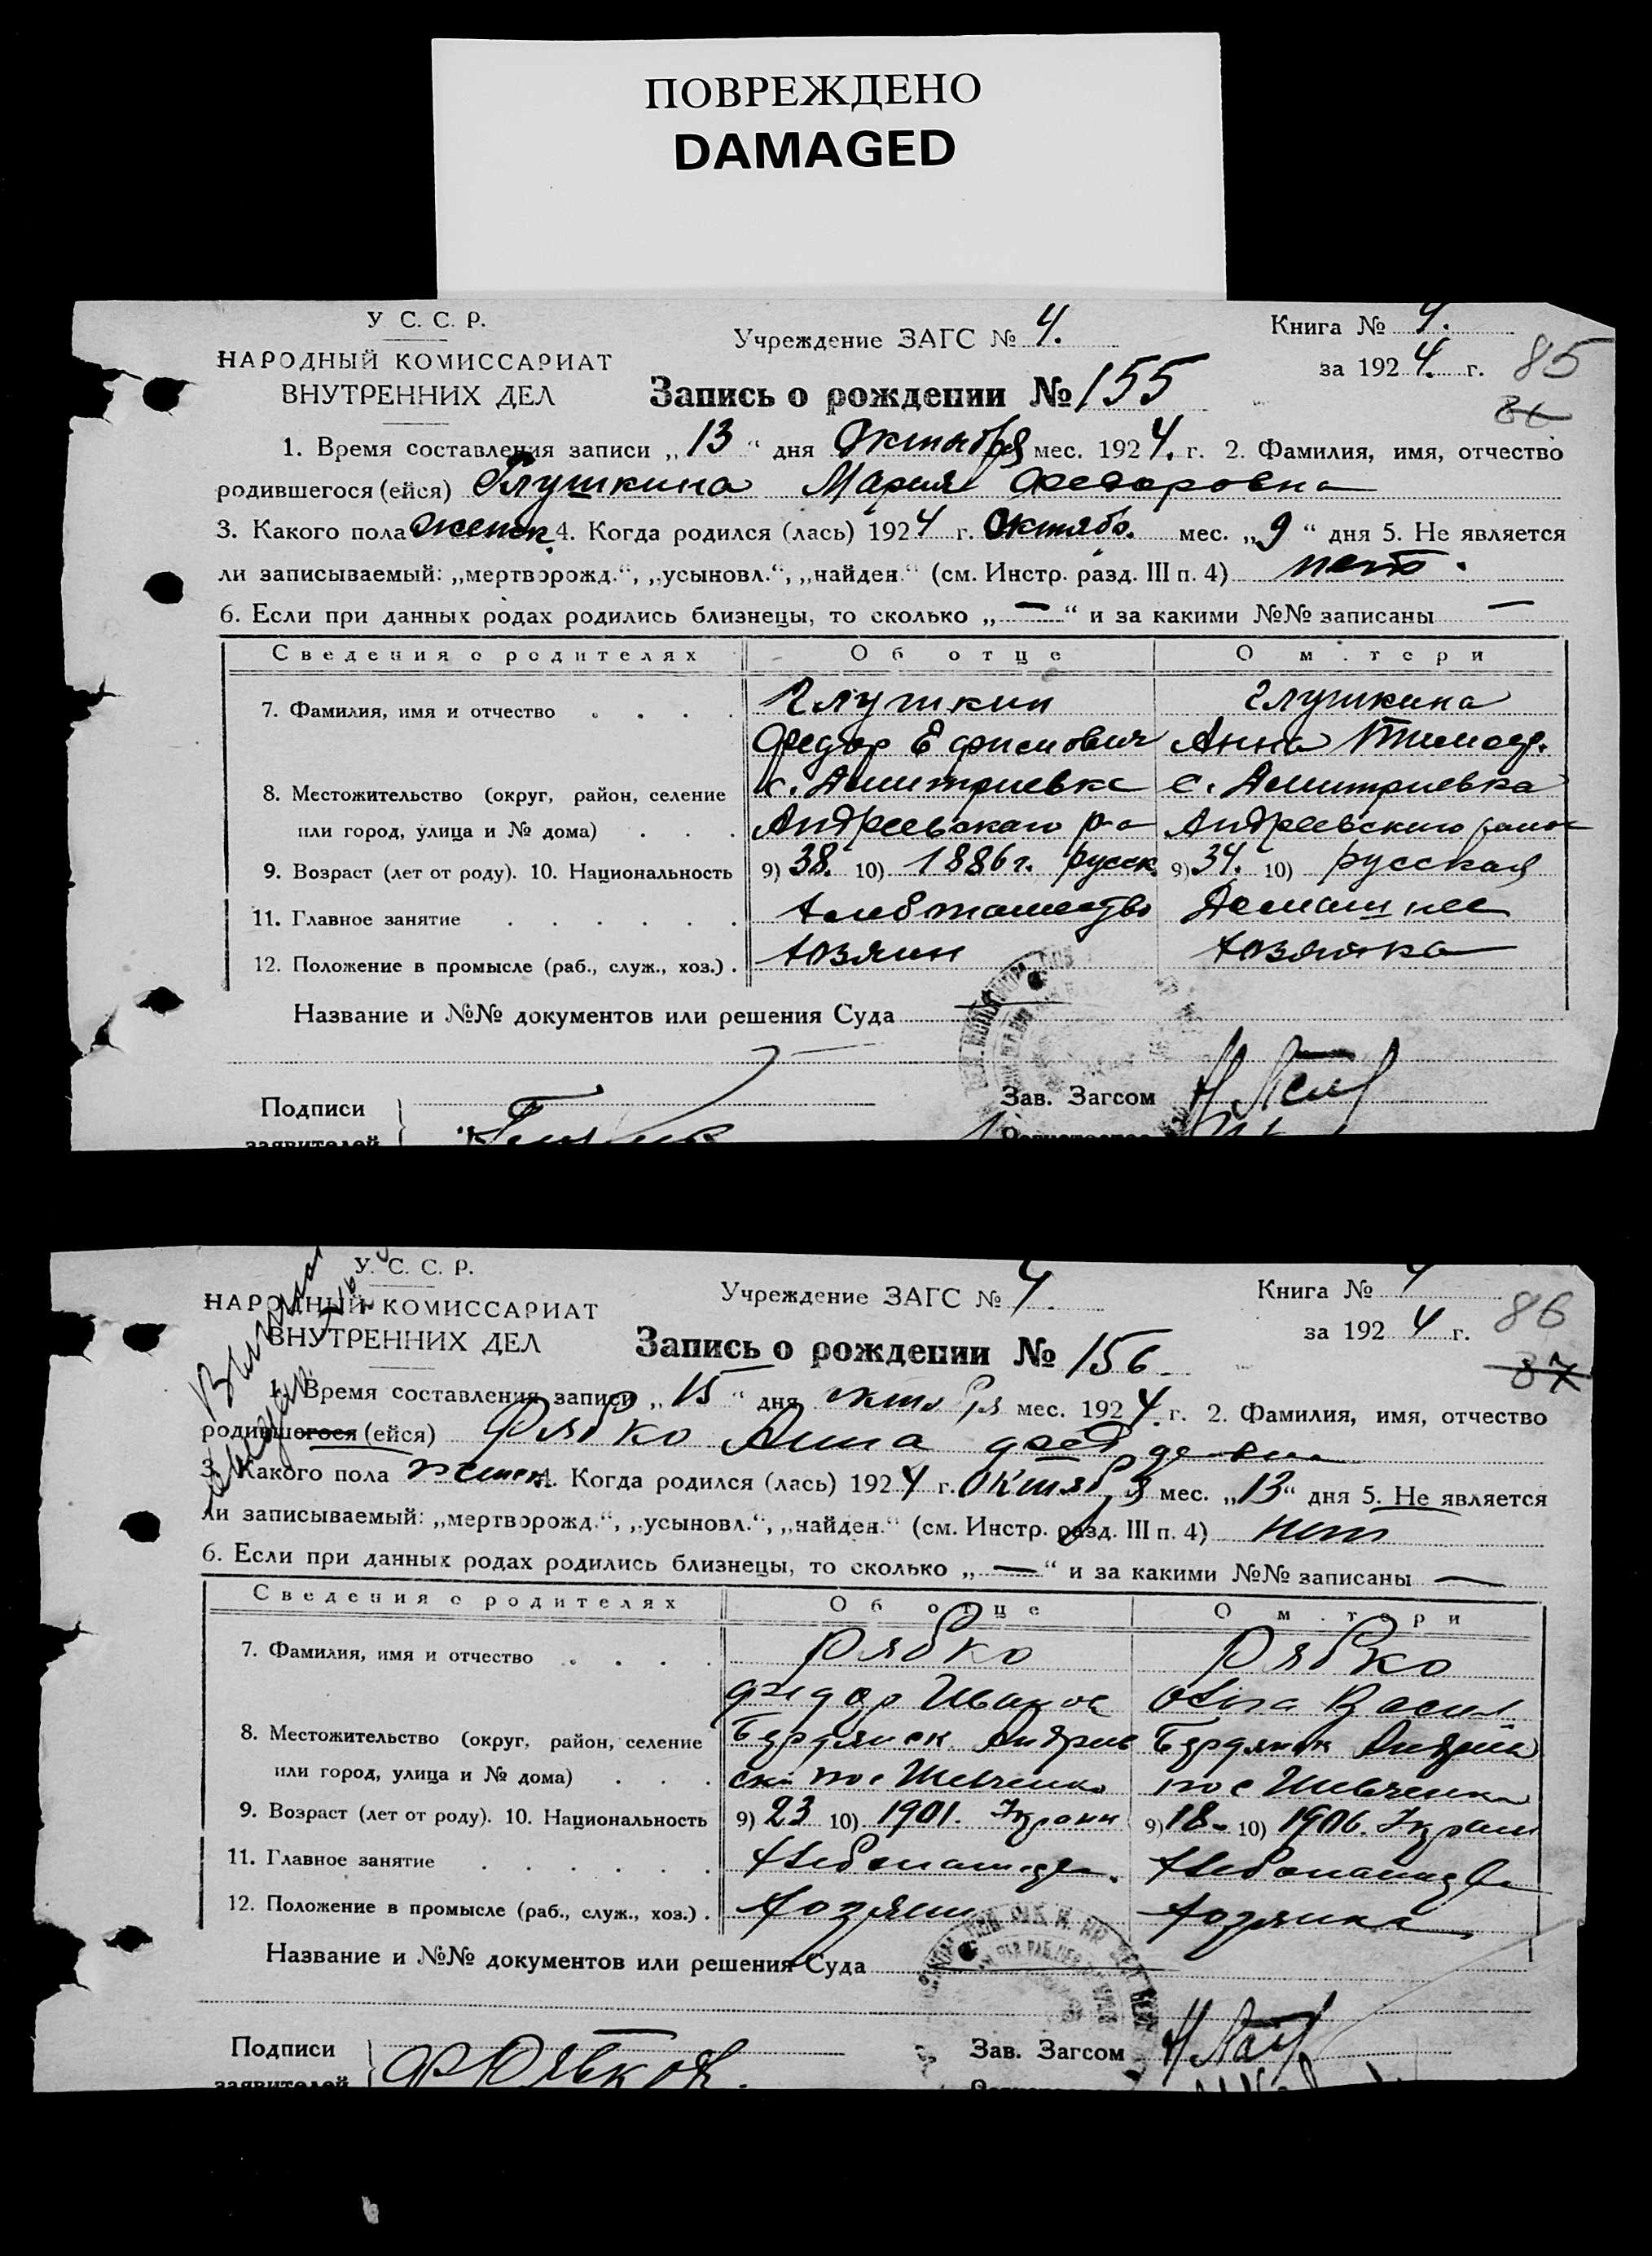 ПОВРЕЖДЕНО
DAMAGED
У С. С. Р.
НАРОДНЫЙ КОМИССАРИАТ
ВНУТРЕННИХ ДЕЛ
Учреждение ЗАГС № 4.
Книга № 4.
за 1924. г.
85
86
Запись о рождении № 155
1. Время составления записи „13“ дня Октября мес. 1924. г. 2. Фамилия, имя, отчество
родившегося (ейся) Глушкина Мария Федоровна
3. Какого пола женск. 4. Когда родился (лась) 1924 г. Октябр. мес. „9“ дня 5. Не является
ли записываемый: „мертворожд.“, „усыновл.“, „найден.“ (см. Инстр. разд. III п. 4) нет.
6. Если при данных родах родились близнецы, то сколько „—“ и за какими №№ записаны —
Сведения о родителях Об отце О м.тери
7. Фамилия, имя и отчество . . . . Глушкин Глушкина
Федор Ефимович Анна Тимоф.
8. Местожительство (округ, район, селение с. Дмитриевка с. Дмитриевка
или город, улица и № дома) . . . Андреевскаго р-а Андреевского район
9. Возраст (лет от роду). 10. Национальность 9) 38. 10) 1886 г. русск. 9) 34. 10) русская
11. Главное занятие . . . . . . Хлебопашество Домашнее
12. Положение в промысле (раб., служ., хоз.) . Хозяин Хозяйка
Название и №№ документов или решения Суда —
Подписи
заявителей
Зав. Загсом
У. С. С. Р.
НАРОДНЫЙ КОМИССАРИАТ
ВНУТРЕННИХ ДЕЛ
Учреждение ЗАГС № 4.
Книга № 4
за 1924 г.
86
87
Запись о рождении № 156
1. Время составления записи „15“ дня октября мес. 1924. г. 2. Фамилия, имя, отчество
родившегося (ейся) Рябко Анна
3. Какого пола женск. 4. Когда родился (лась) 1924 г. Октября мес. „13“ дня 5. Не является
ли записываемый: „мертворожд.“, „усыновл.“, „найден.“ (см. Инстр. разд. III п. 4) нет
6. Если при данных родах родились близнецы, то сколько „—“ и за какими №№ записаны —
Сведения о родителях Об отце О м.тери
7. Фамилия, имя и отчество . . . . Рябко Рябко
Федор Иванов Васил.
8. Местожительство (округ, район, селение Бердянск Андрив Бердянск Андрив
или город, улица и № дома) . . . ски пос Шевченко пос Шевченка
9. Возраст (лет от роду). 10. Национальность 9) 23 10) 1901. Украин 9) 18. 10) 1906. Украин
11. Главное занятие . . . . . . Хлебопашде. Хлебопашде
12. Положение в промысле (раб., служ., хоз.) . Хозяин Хозяика
Название и №№ документов или решения Суда —
Подписи
заявителей
Зав. Загсом